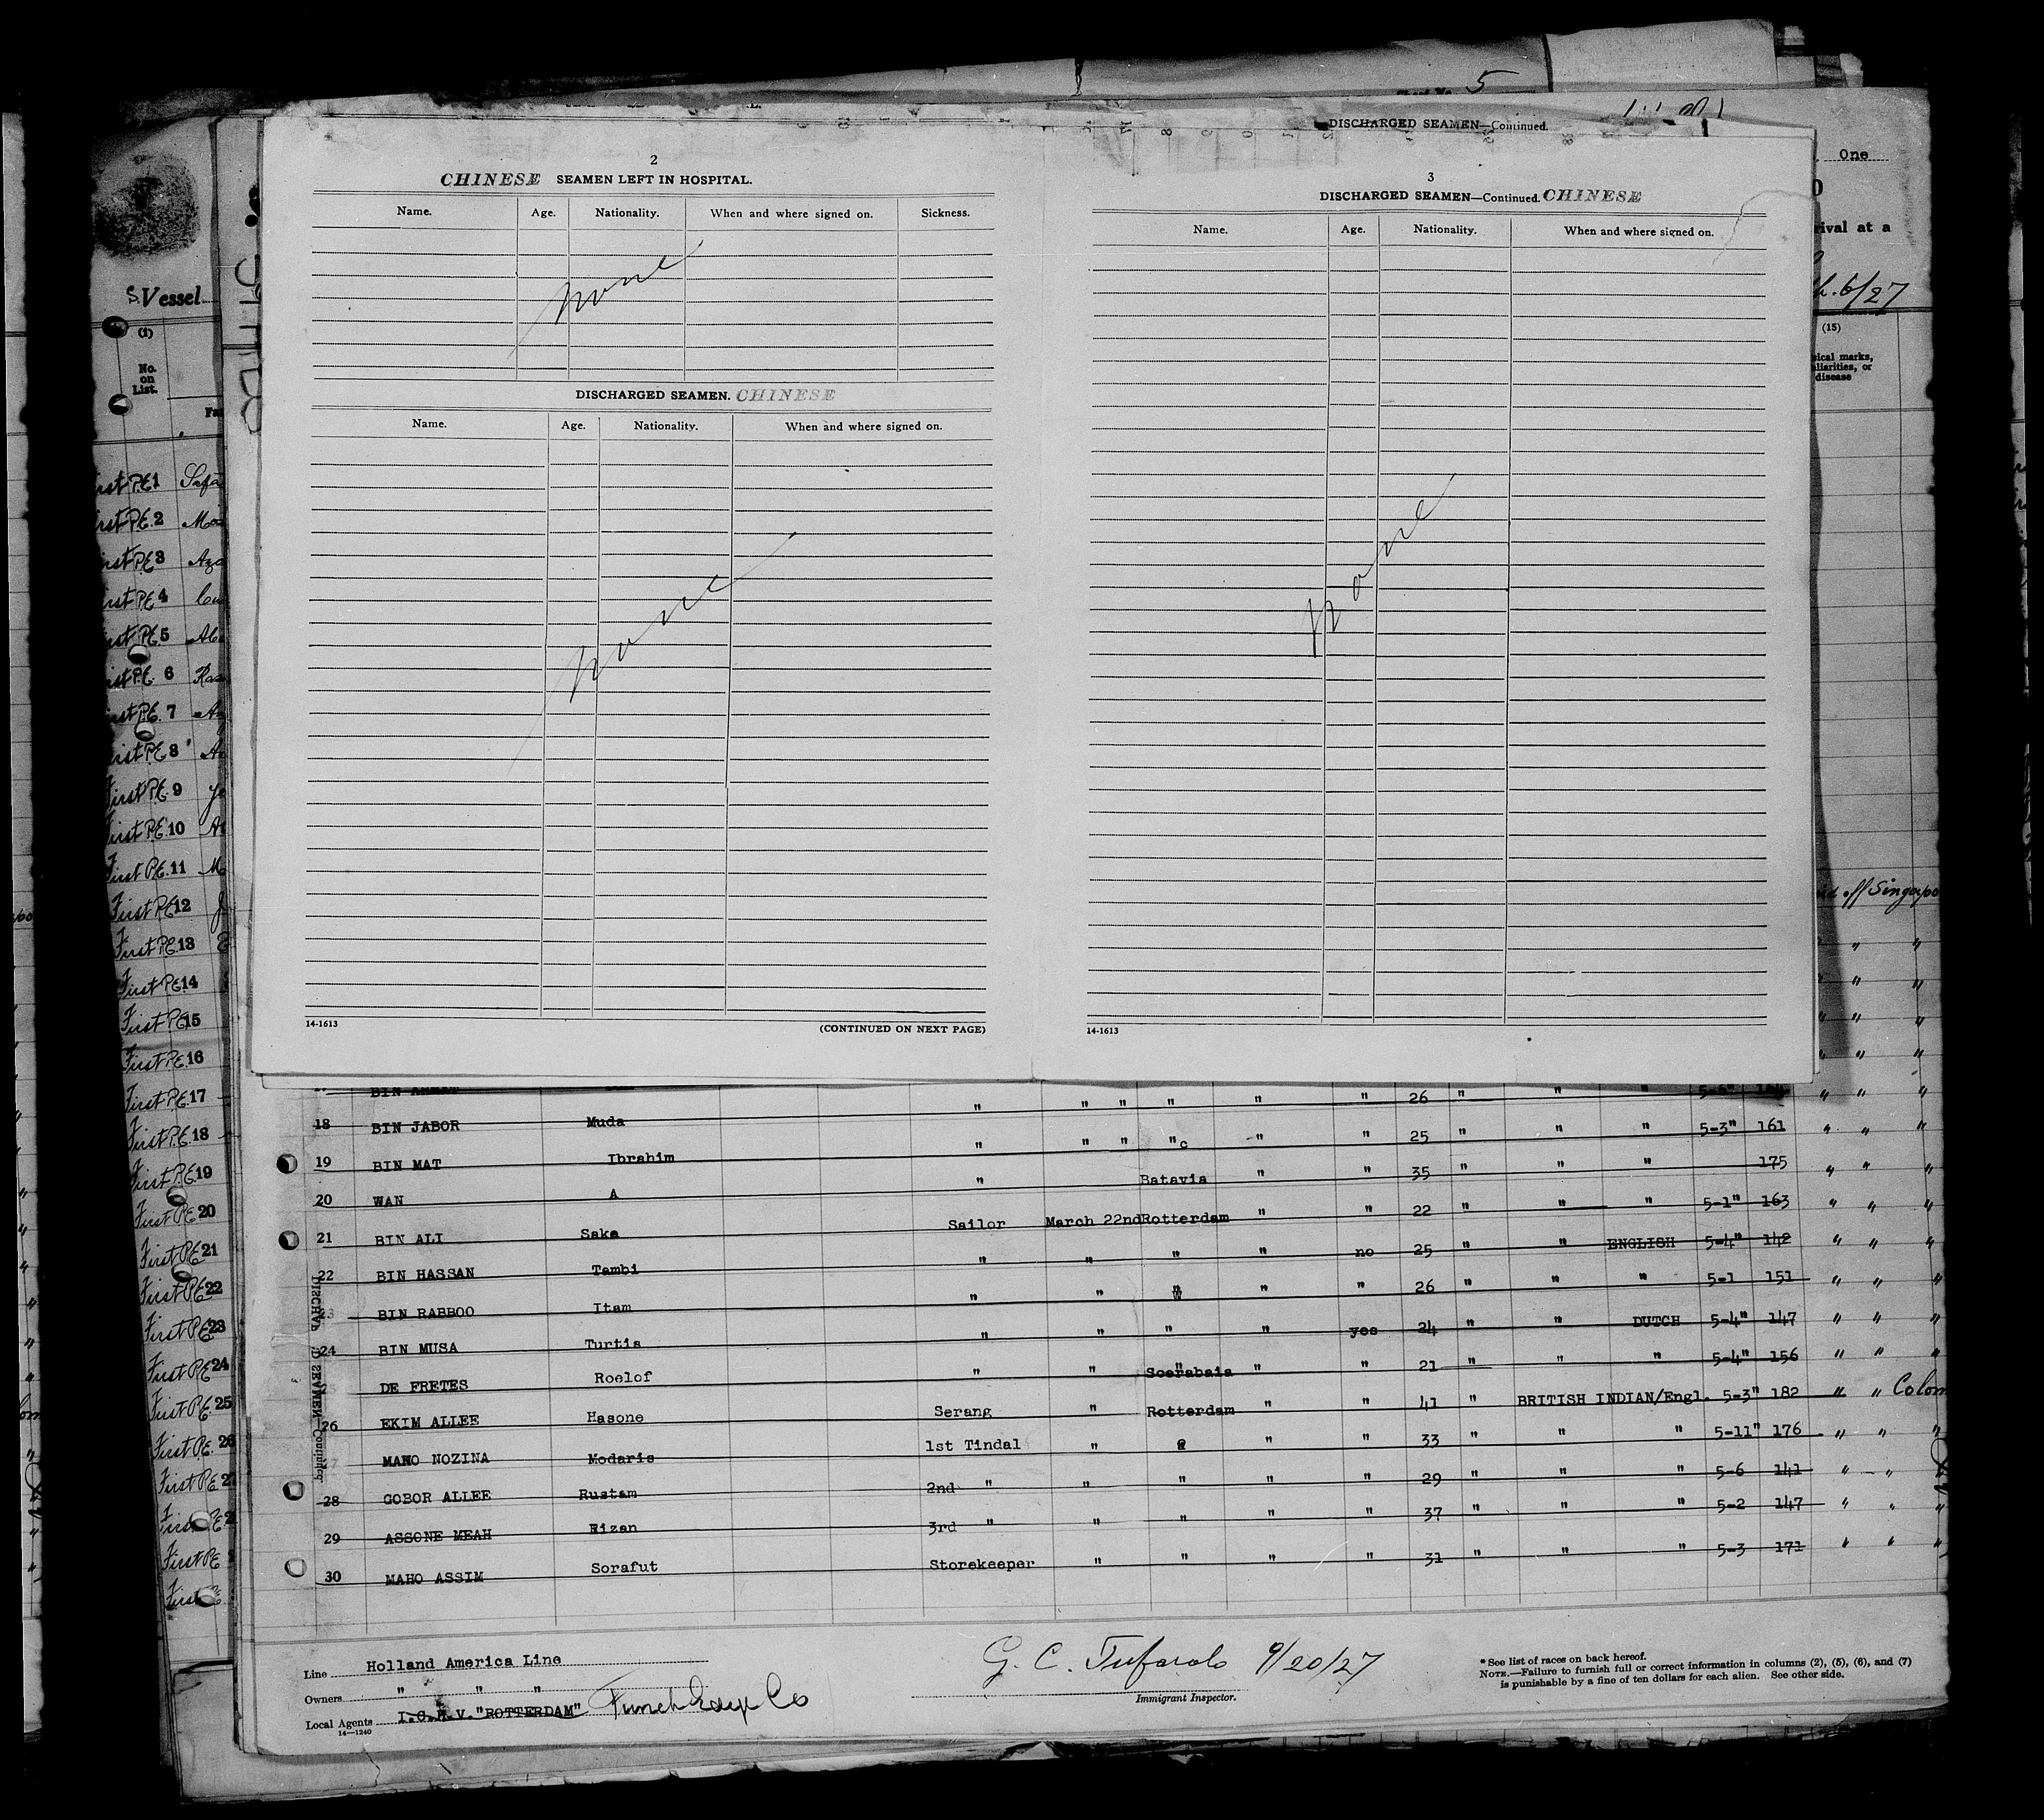 5
DISCHARGED SEAMEN—Continued.
One
rival at a
6/27
(15)
sical marks,
disease
S. Vessel
(1)
No.
on
List.
2
CHINESE SEAMEN LEFT IN HOSPITAL.
Name. Age. Nationality. When and where signed on. Sickness.
none
DISCHARGED SEAMEN. CHINESE
Name. Age. Nationality. When and where signed on.
none
14-1613 (CONTINUED ON NEXT PAGE)
3
DISCHARGED SEAMEN—Continued. CHINESE
Name. Age. Nationality. When and where signed on.
none
14-1613
First P.E. 1
First P.E. 2
First P.E. 3
First P.E. 4
First P.E. 5
First P.E. 6
First P.E. 7
First P.E. 8
First P.E. 9
First P.E. 10
First P.E. 11
First P.E. 12
First P.E. 13
First P.E. 14
First P.E. 15
First P.E. 16
First P.E. 17
First P.E. 18
First P.E. 19
First P.E. 20
First P.E. 21
First P.E. 22
First P.E. 23
First P.E. 24
First P.E. 25
First P.E. 26
off Singapo
18 BIN JABOR Muda " " " " " " 26 " " " 5-6"
19 BIN MAT Ibrahim " " " "c " " 25 " " " 5-3" 161 " " "
20 WAN A " Batavia " " 35 " " " 175 " " "
21 BIN ALI Saka Sailor March 22nd Rotterdam " " 22 " " " 5-1" 163 " " "
22 BIN HASSAN Tambi " " " " no 25 " " ENGLISH 5-4" 142 " " "
23 BIN RABBOO Itam " " " " " 26 " " " 5-1 151 " " "
24 BIN MUSA Turtis " " " " yes 24 " " DUTCH 5-4" 147 " " "
DE FRETES Roelof " " Soerabaia " " 21 " " " 5-4" 156 " " "
26 EKIM ALLEE Hasone Serang " Rotterdam " " 41 " BRITISH INDIAN/Engl. 5-3" 182 " " Colom
MAHO NOZINA Modaris 1st Tindal " " " 33 " " " 5-11" 176 " " "
28 GOBOR ALLEE Rustam 2nd " " " " " 29 " " " 5-6 141 " "
29 ASSONE MEAH Rizan 3rd " " " " " 37 " " " 5-2 147 " " "
30 MAHO ASSIM Sorafut Storekeeper " " " " 31 " " " 5-3 171 " " "
Line Holland America Line
Owners " " "
Local Agents I.C.H.V. "ROTTERDAM" Funch Edye Co
14—1240
G. C. Tufarolo 9/20/27
Immigrant Inspector.
* See list of races on back hereof.
NOTE.—Failure to furnish full or correct information in columns (2), (5), (6), and (7)
is punishable by a fine of ten dollars for each alien. See other side.